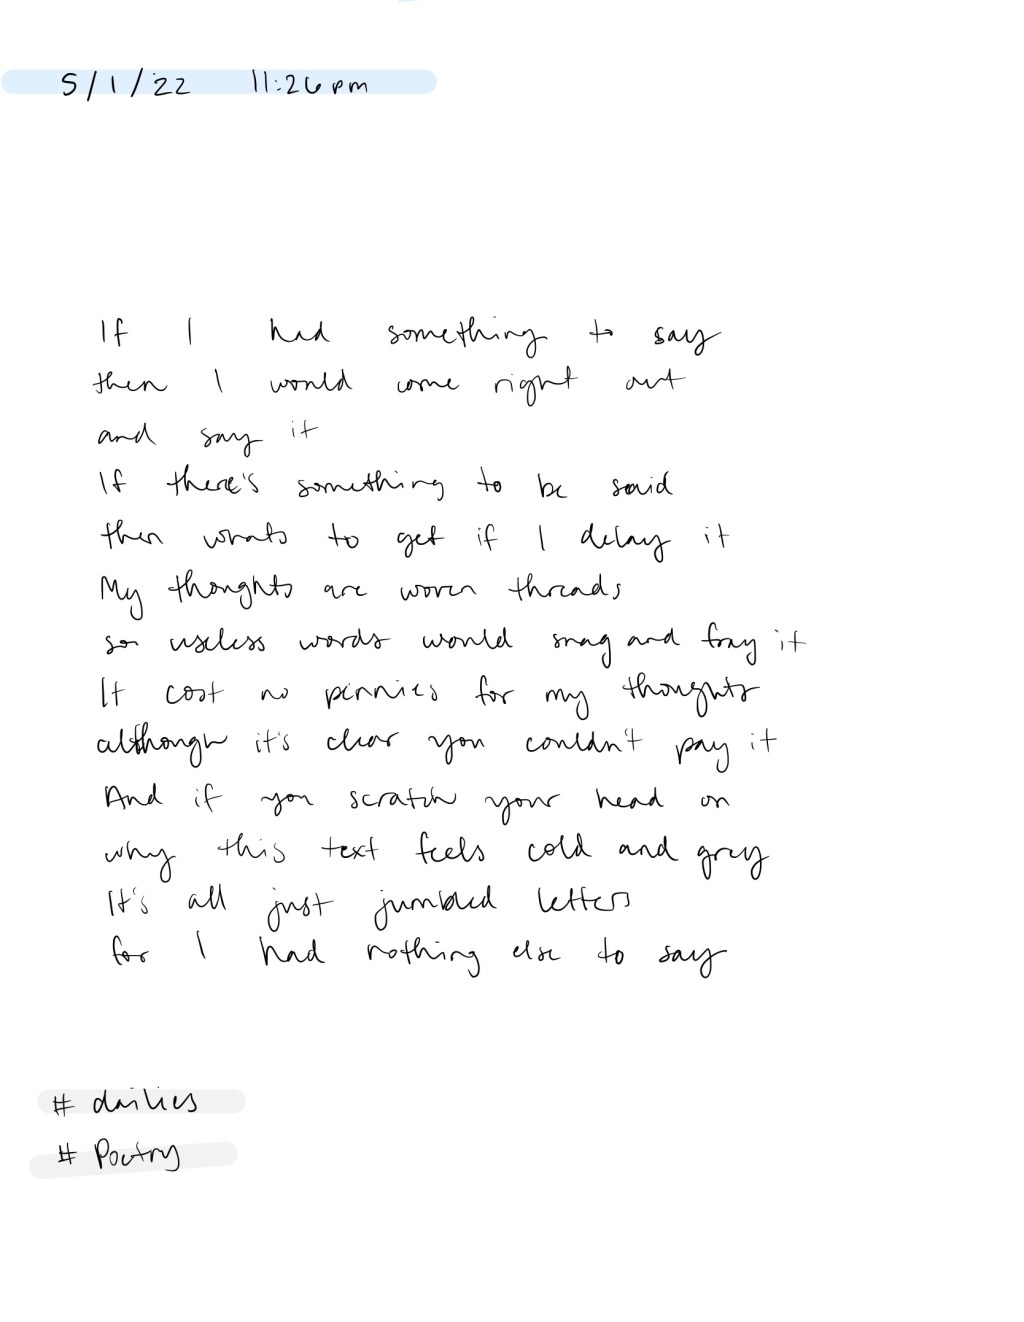 5/1/22 11:26 pm
If I had something to say
then I would come right out
and say it
If there's something to be said
then whats to get if I delay it
My thoughts are woven threads
so useless words would snag and fray it
It cost no pennies for my thoughts
although it's clear you couldn't pay it
And if you scratch your head on
why this text feels cold and grey
It's all just jumbled letters
for I had nothing else to say
# dailies
# Poetry